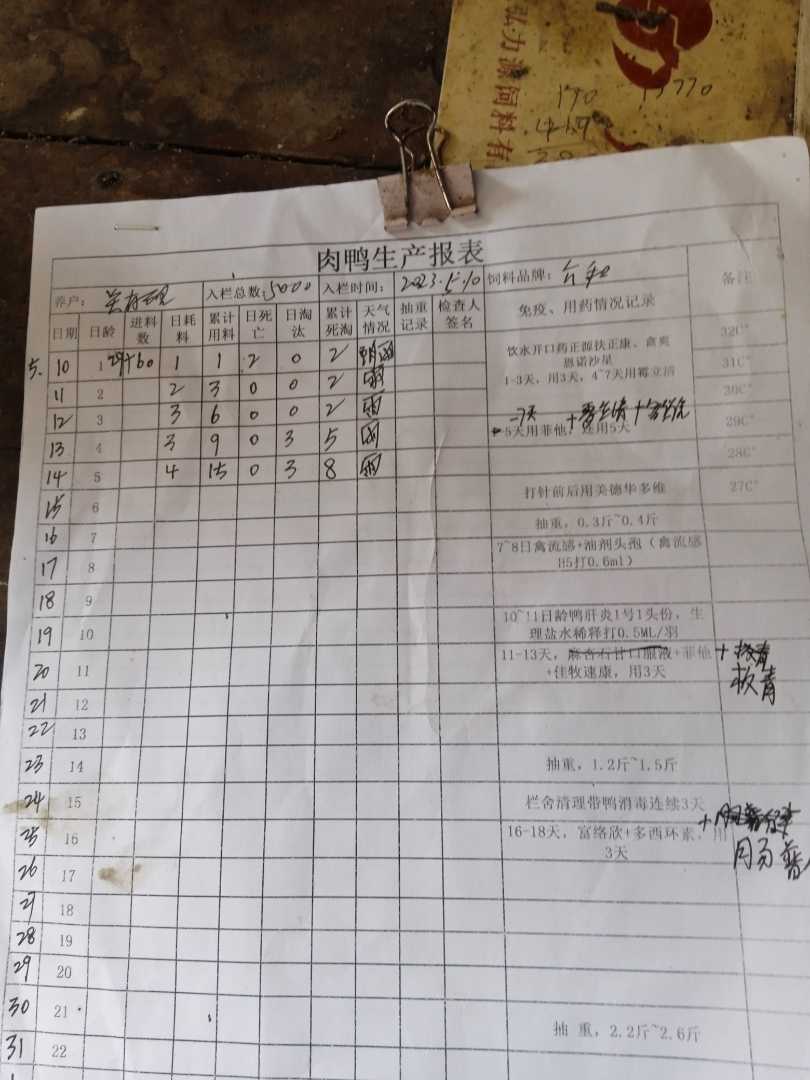 弘力源饲料有
170 13770
肉鸭生产报表
养户： 入栏总数：5000 入栏时间：2023.5.10 饲料品牌： 备注
日期 日龄 进料数 日耗料 累计用料 日死亡 日淘汰 累计死淘 天气情况 抽重记录 检查人签名 免疫、用药情况记录
5. 10 1 29+60 1 1 2 0 2 阴雨 饮水开口药正源扶正康、禽爽 32C°
恩诺沙星
11 2 2 3 0 0 2 雨 1-3天，用3天，4~7天用霉立清 31C°
30C°
12 3 3 6 0 0 2 雨
13 4 3 9 0 3 5 雨 5天用菲他，连用5天 29C°
28C°
14 5 4 15 0 3 8 雨 打针前后用美德华多维 27C°
15 6
16 7 抽重，0.3斤~0.4斤
17 8 7~8日禽流感+油剂头孢（禽流感
H5打0.6ml）
18 9
19 10 10~11日龄鸭肝炎1号1头份，生
理盐水稀释打0.5ML/羽
20 11 11-13天，麻杏石甘口服液+菲他
+佳牧速康，用3天
21 12
22 13
23 14 抽重，1.2斤~1.5斤
24 15 栏舍清理带鸭消毒连续3天
25 16 16-18天，富络欣+多西环素，用
3天
26 17
27 18
28 19
29 20
30 21 抽 重，2.2斤~2.6斤
31 22